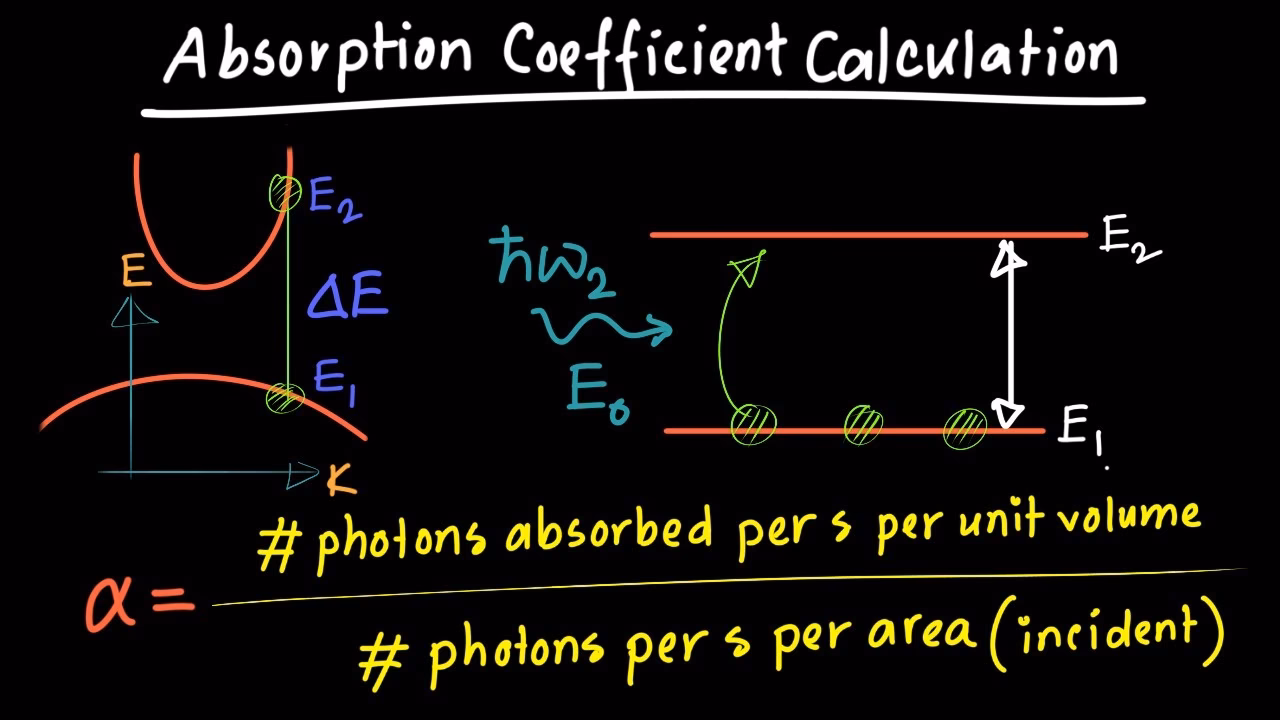 Absorption Coefficient Calculation
E₂
E
ΔE
E₁
K
ħω₂
E₀
E₂
E₁
# photons absorbed per s per unit volume
α =
# photons per s per area (incident)